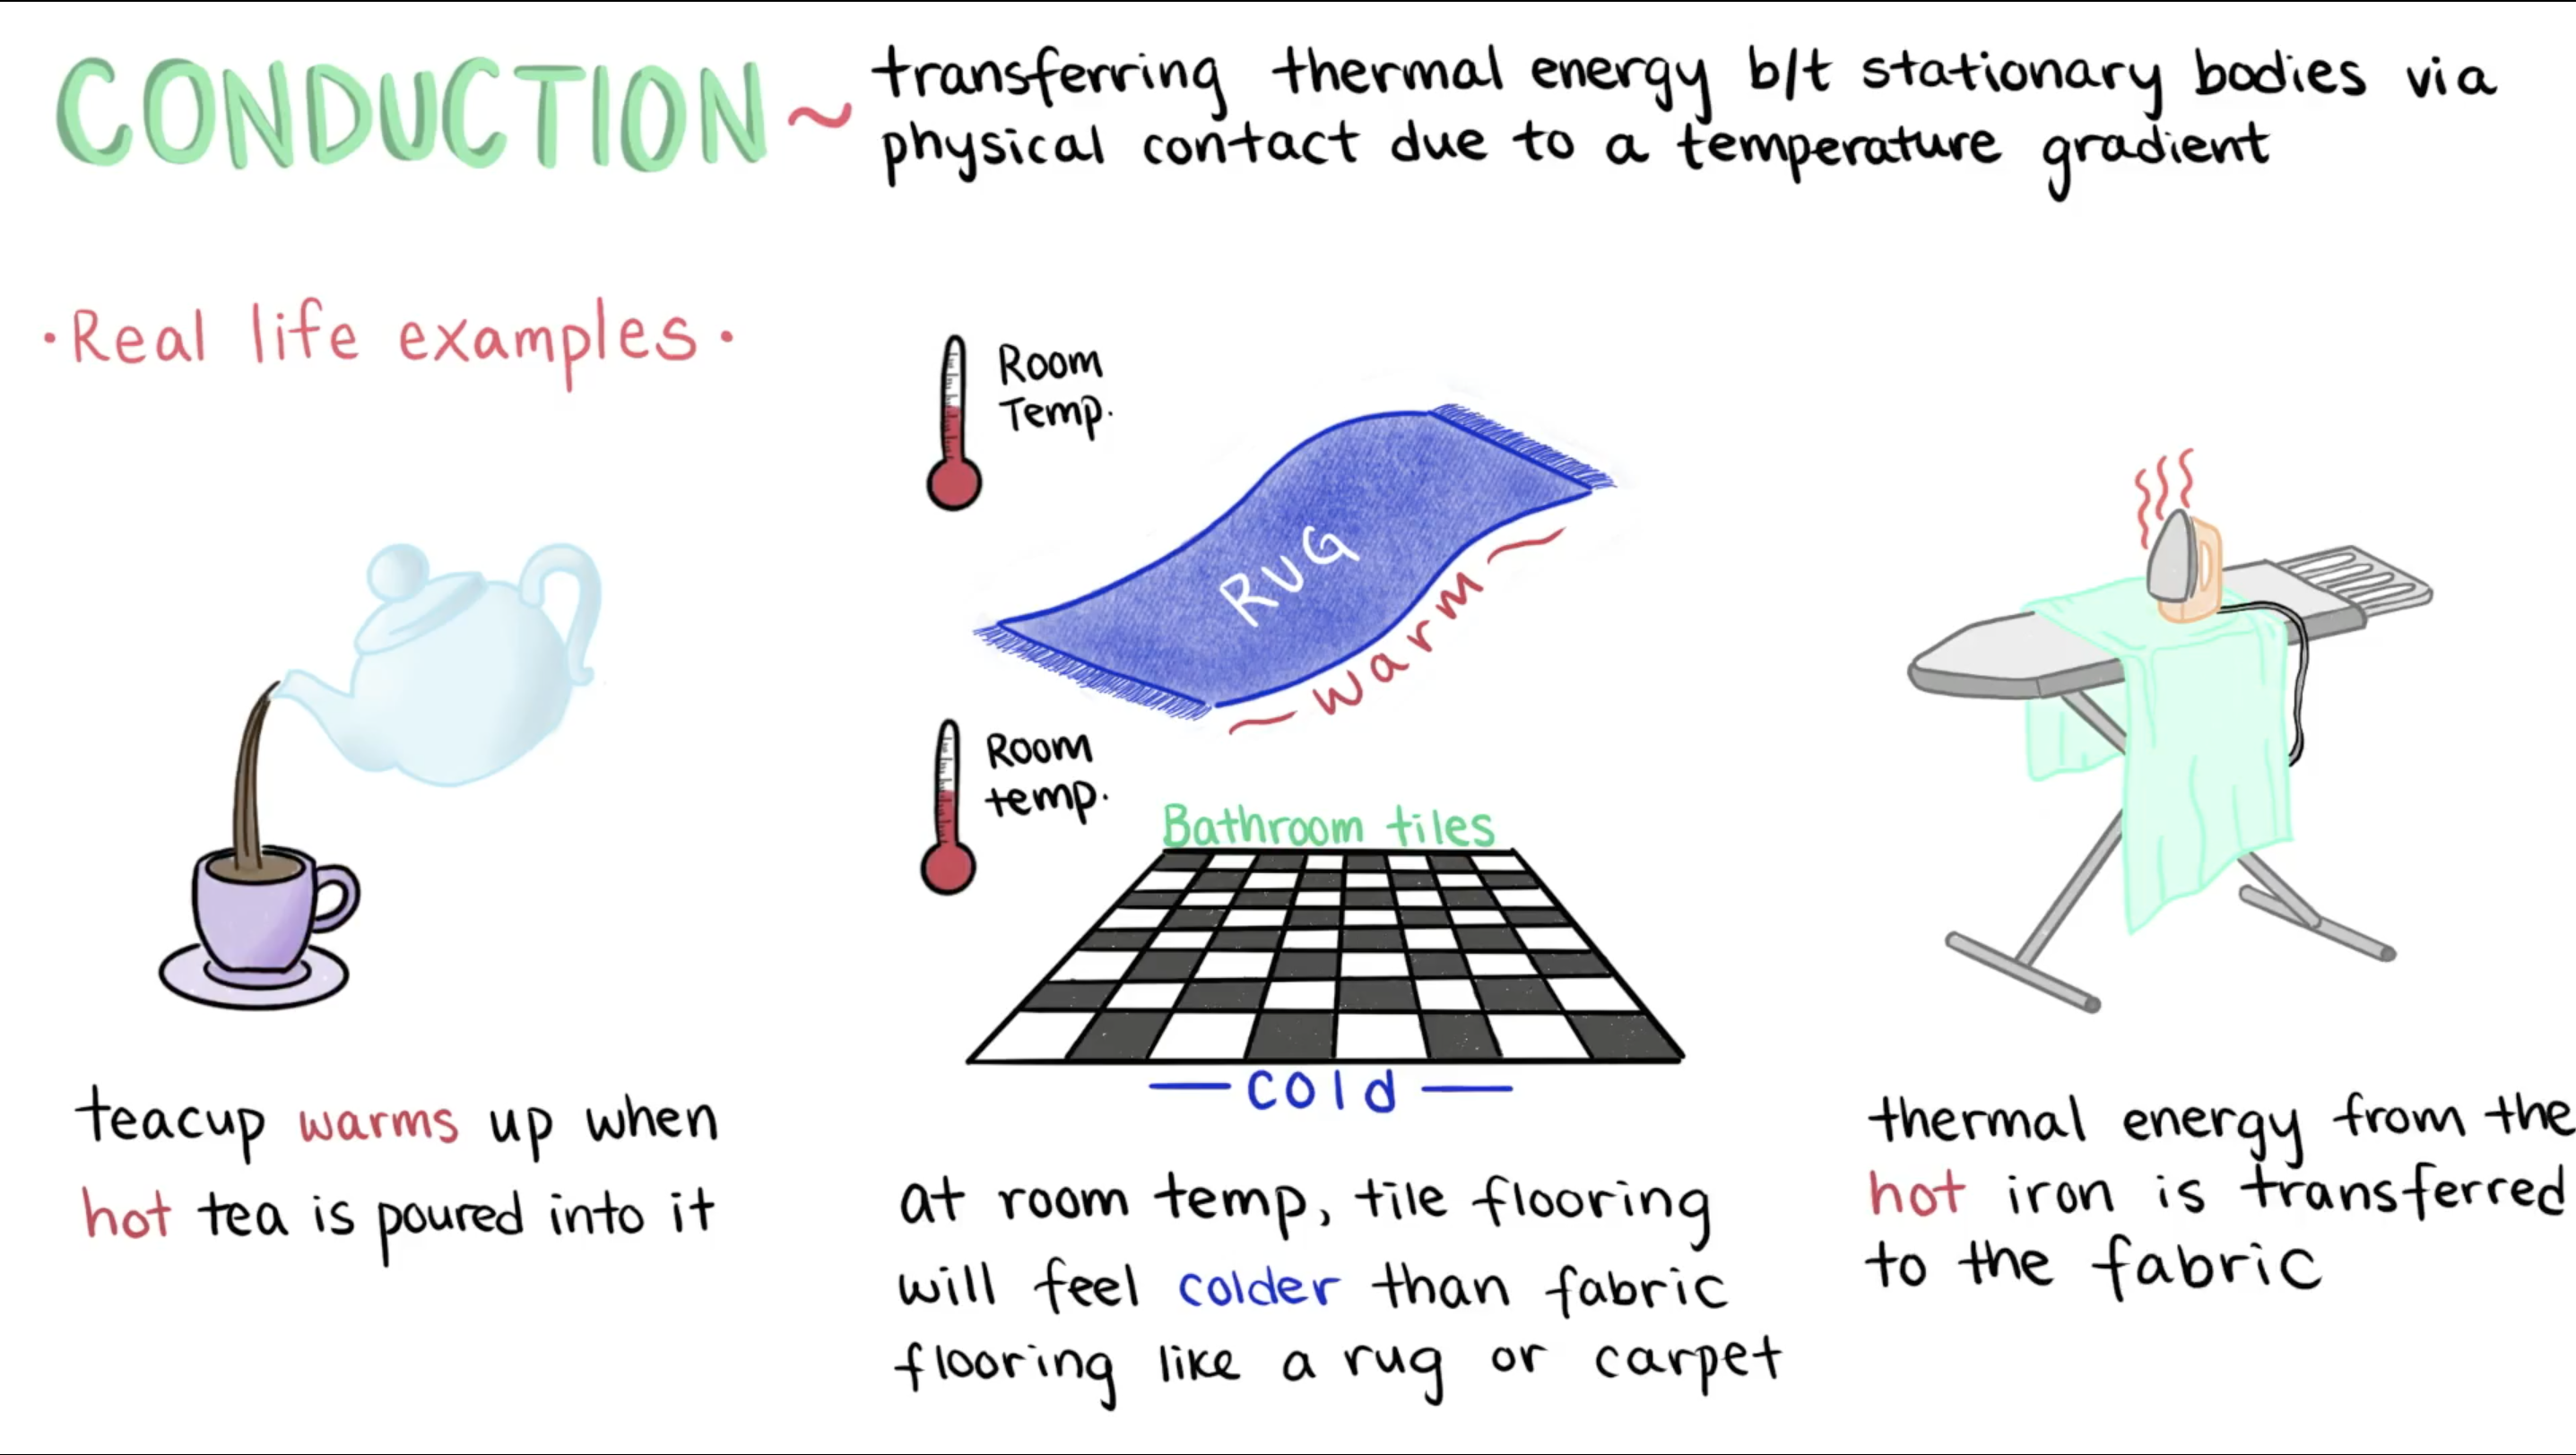 CONDUCTION ~ transferring thermal energy b/t stationary bodies via
physical contact due to a temperature gradient
· Real life examples ·
Room
Temp.
RUG
~ warm ~
Room
temp.
Bathroom tiles
— cold —
teacup warms up when
hot tea is poured into it
at room temp, tile flooring
will feel colder than fabric
flooring like a rug or carpet
thermal energy from the
hot iron is transferred
to the fabric